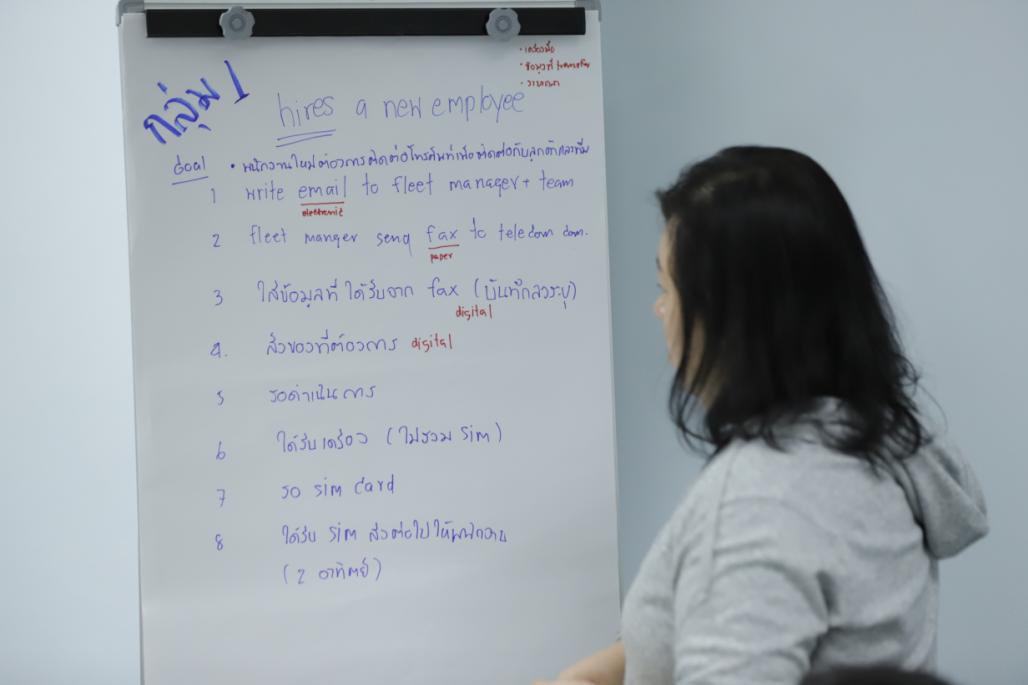 กลุ่ม 1
• เครื่องมือ
• ข้อมูลที่ transfer
hires a new employee
Goal • พนักงานใหม่ต้องการติดต่อโทรศัพท์เพื่อติดต่อกับลูกค้า ทีม
1 write email to fleet manager + team
electronic
2 fleet manger send fax to telecom com.
paper
3 ใส่ข้อมูลที่ได้รับจาก fax (บันทึกลงระบบ)
digital
4. สั่งของที่ต้องการ digital
5 รอดำเนินการ
6 ได้รับเครื่อง (ไม่รวม sim)
7 รอ sim card
8 ได้รับ sim ส่งต่อไปให้พนักงาน
(2 อาทิตย์)